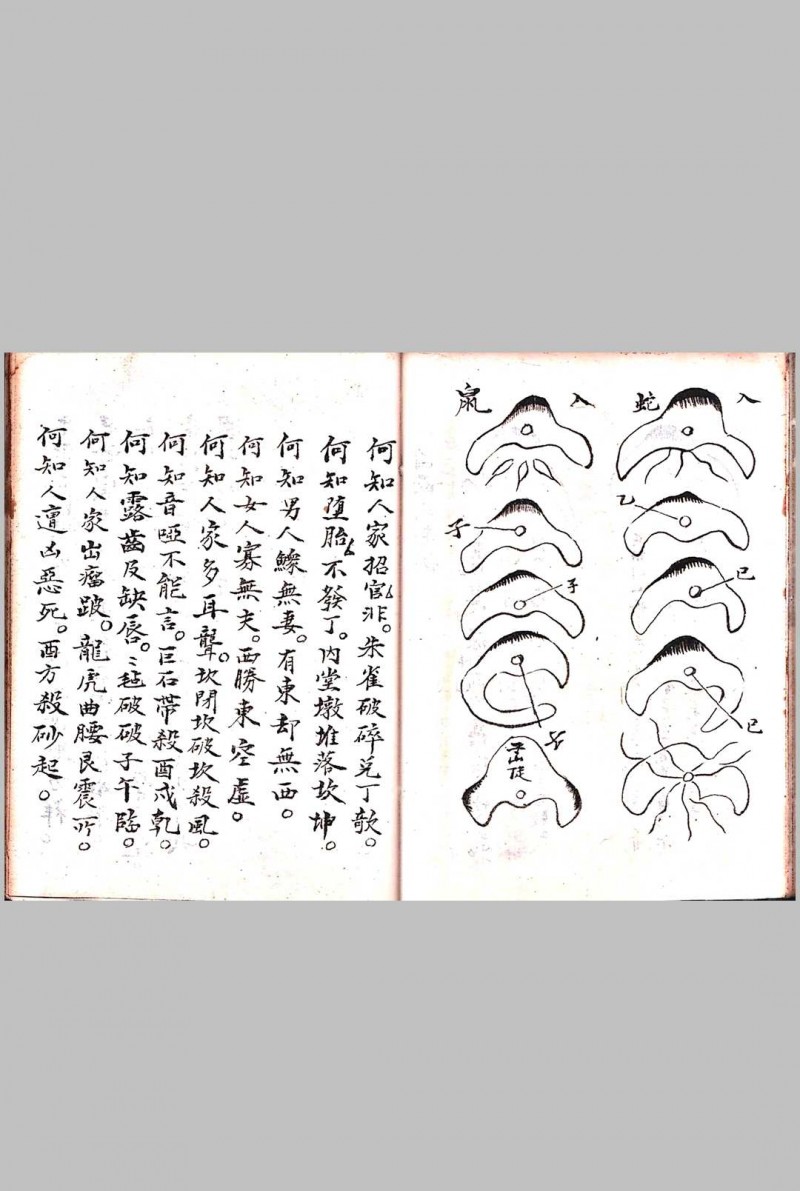 入蛇
乙
巳
巳
入鼠
子
子
子
何知人家招官非。朱雀破碎兌丁欹。
何知堕胎不發丁。内堂墩堆落坎坤。
何知男人鰥無妻。有東却無西。
何知女人寡無夫。西勝東空虛。
何知人家多耳聾。坎閉坎破坎殺風。
何知音啞不能言。巨石帶殺酉戌乾。
何知露齒及缺唇。破破子午臨。
何知人家出瘤跛。龍虎曲腰艮震所。
何知人遭凶惡死。西方殺砂起。